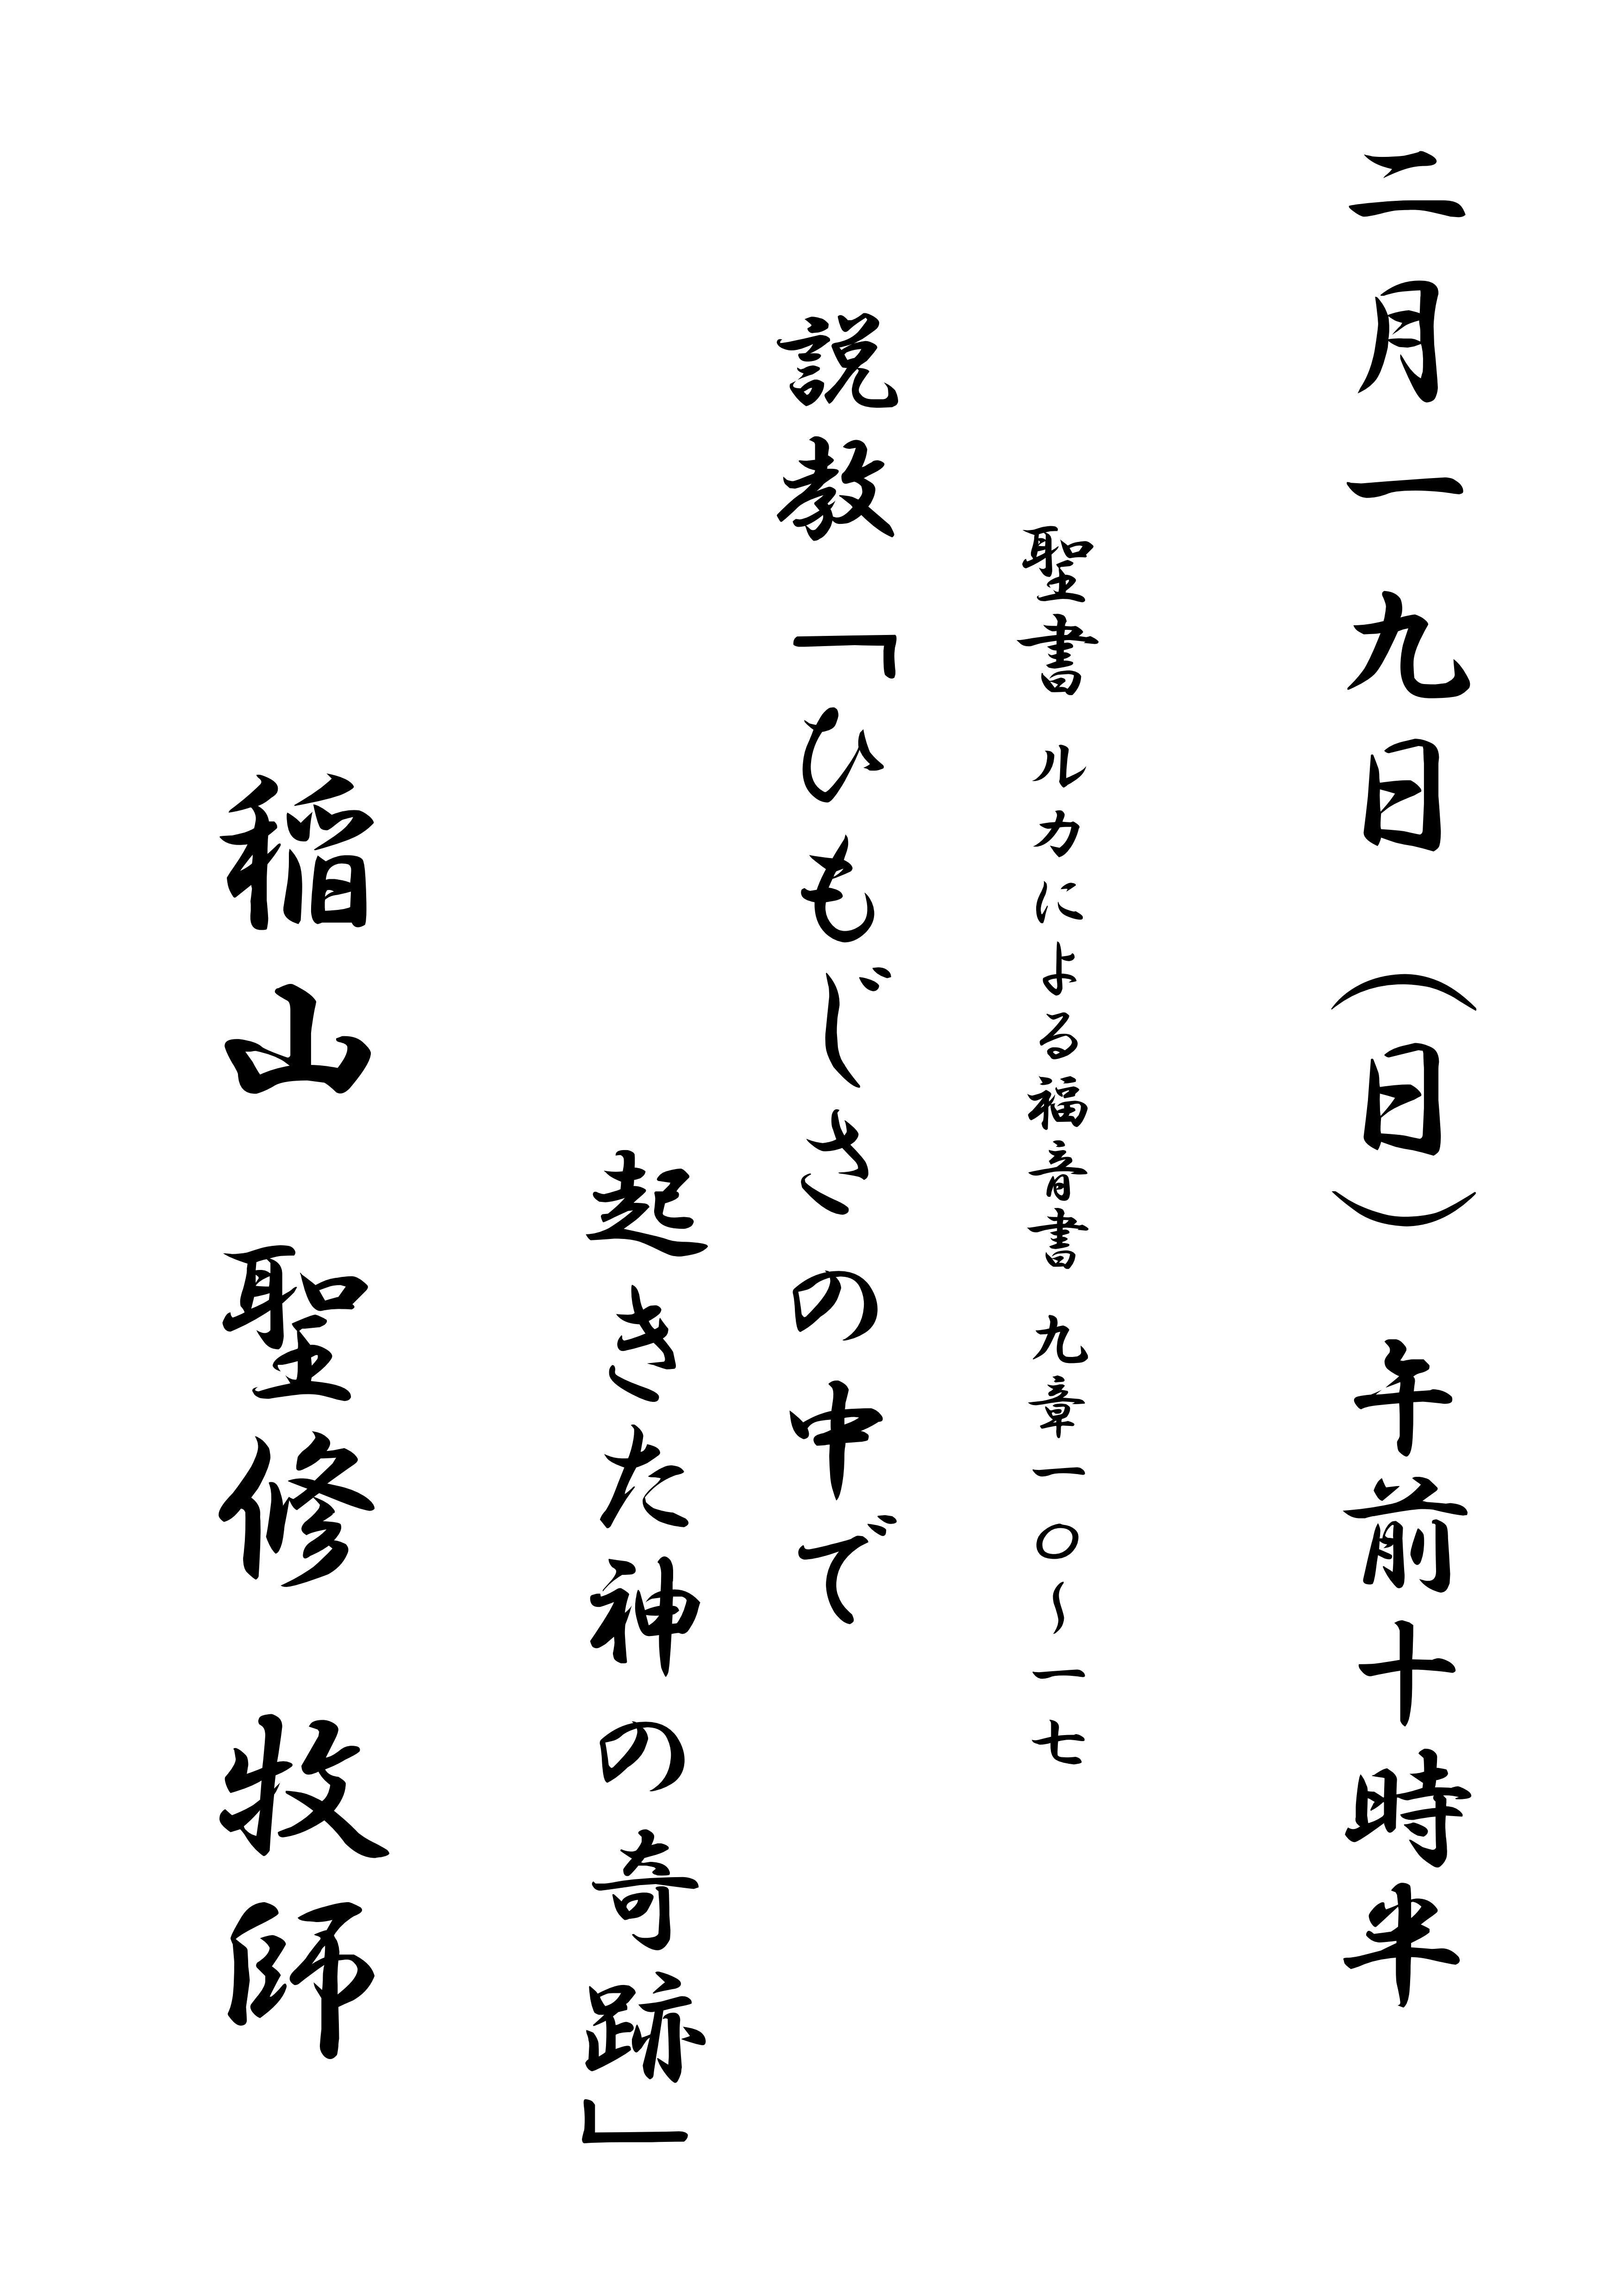 二月一九日（日）午前十時半
聖書 ルカによる福音書 九章一〇～一七
説教 「ひもじさの中で
起きた神の奇跡」
稲山 聖修 牧師